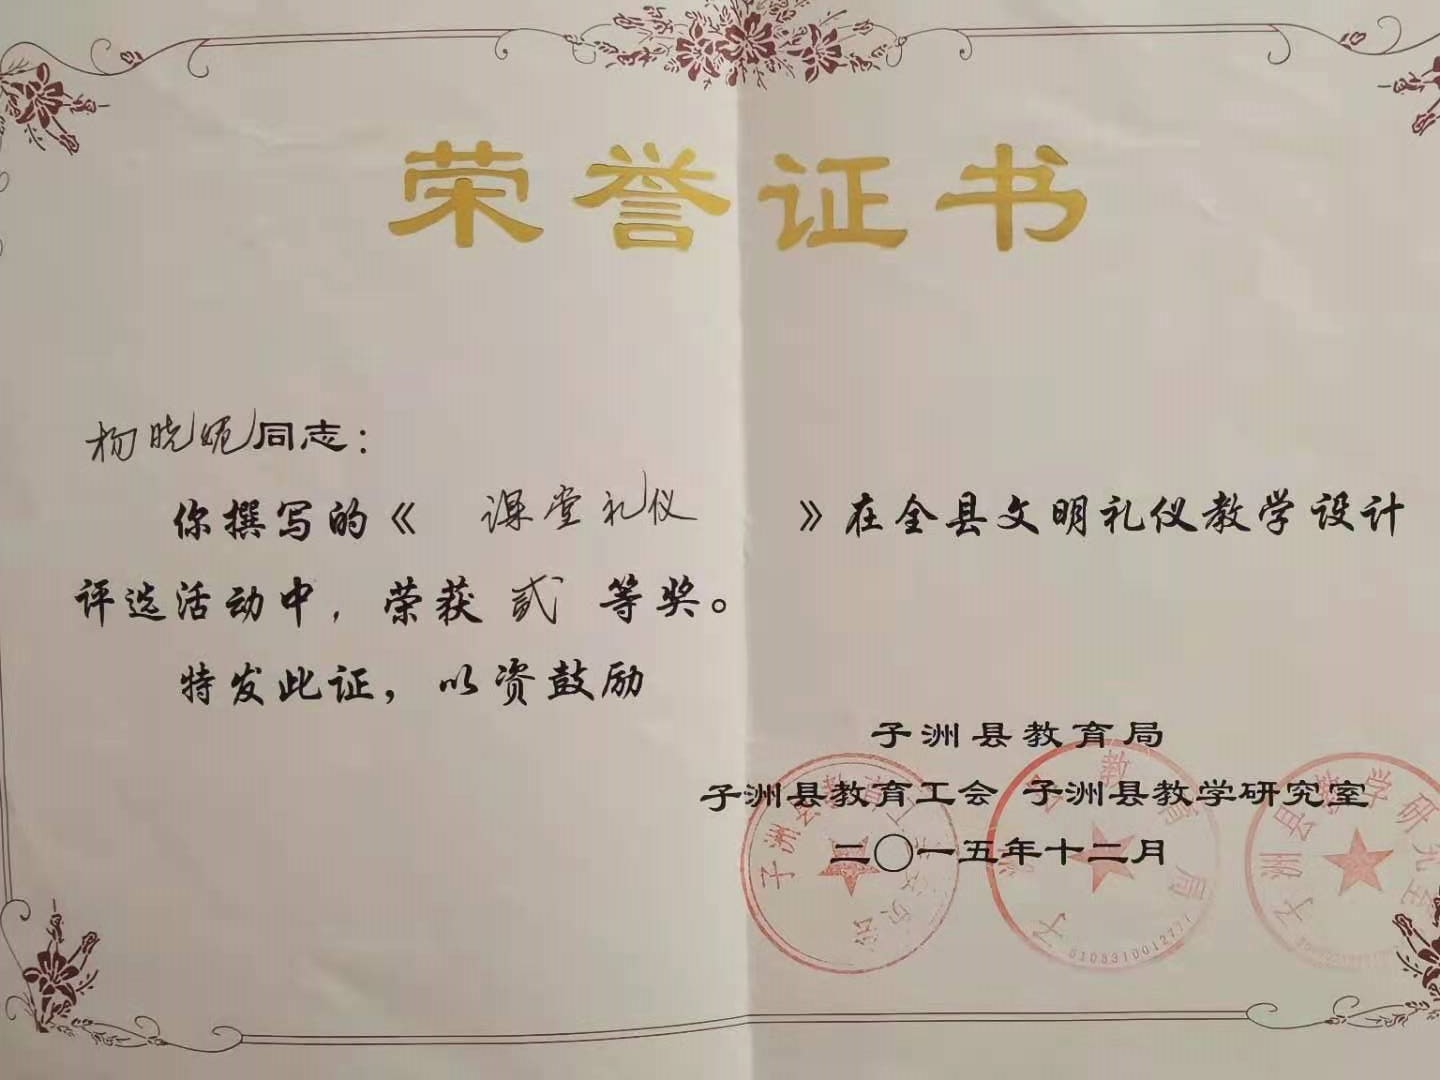 荣誉证书
杨晓妮同志：
你撰写的《 课堂礼仪 》在全县文明礼仪教学设计
评选活动中，荣获 贰 等奖。
特发此证，以资鼓励
子洲县教育局
子洲县教育工会 子洲县教学研究室
二〇一五年十二月
子洲县教育工会委员会
子洲县教育局
子洲县教学研究室